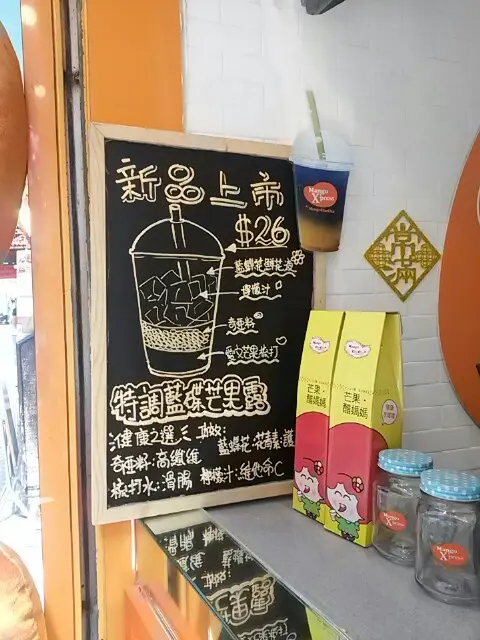 新品上市
$26
藍蝶花鮮花煮
檸檬汁
奇亞籽
愛文芒果梳打
特調藍碟芒果露
健康之選
奇亞籽:高纖維
梳打水:滑腸
藍蝶花:花青素:護
檸檬汁:維他命C
Mango
Xpress
常滿
芒果·
酷媽媽
芒果·
酷媽媽
Mango
Xpress
Mango
Xpress